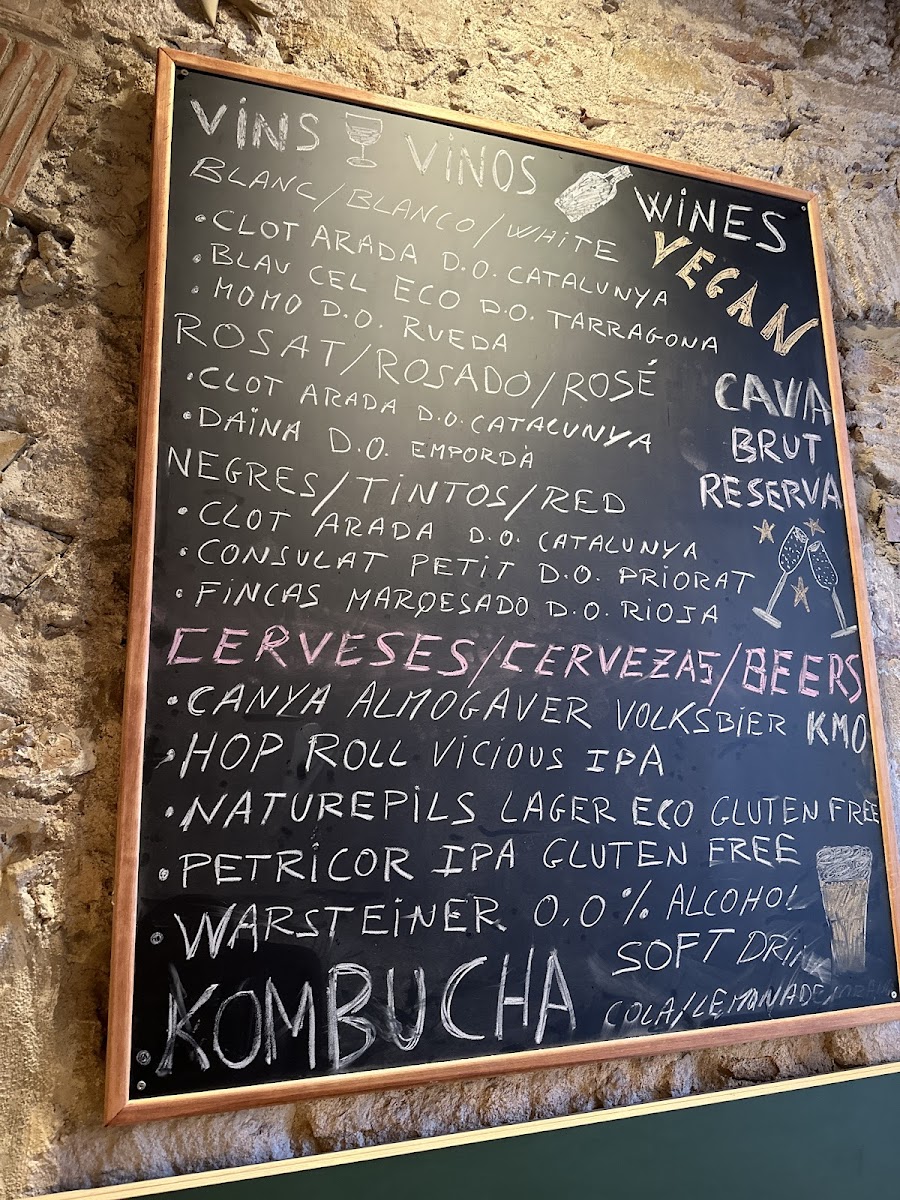 VINS VINOS WINES
VEGAN
BLANC/BLANCO/WHITE
• CLOT ARADA D.O. CATALUNYA
• BLAU CEL ECO D.O. TARRAGONA
• MOMO D.O. RUEDA
ROSAT/ROSADO/ROSÉ
• CLOT ARADA D.O. CATALUNYA
• DAINA D.O. EMPORDÀ
CAVA
BRUT
RESERVA
NEGRES/TINTOS/RED
• CLOT ARADA D.O. CATALUNYA
• CONSULAT PETIT D.O. PRIORAT
• FINCAS MARQESADO D.O. RIOJA
CERVESES/CERVEZAS/BEERS
• CANYA ALMOGAVER VOLKSBIER KM0
• HOP ROLL VICIOUS IPA
• NATUREPILS LAGER ECO GLUTEN FREE
• PETRICOR IPA GLUTEN FREE
• WARSTEINER 0,0% ALCOHOL
KOMBUCHA
SOFT
COLA/LEMONADE